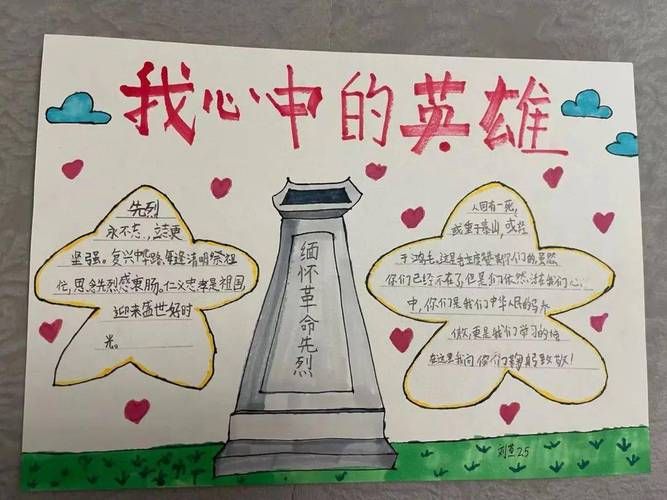 我心中的英雄
先烈
永不忘，立志更
坚强。复兴中华路，每逢清明祭祖
忙，思念先烈感衷肠。仁义忠孝是祖国，
迎来盛世好时
光。
缅怀革命先烈
人固有一死，
或重于泰山，或轻
于鸿毛。这是
你们已经不在了但是你们依然活在我们心
中，你们是我们中华人民的骄
傲，更是我们学习的榜
在这里我向你们鞠躬致敬！
2.5